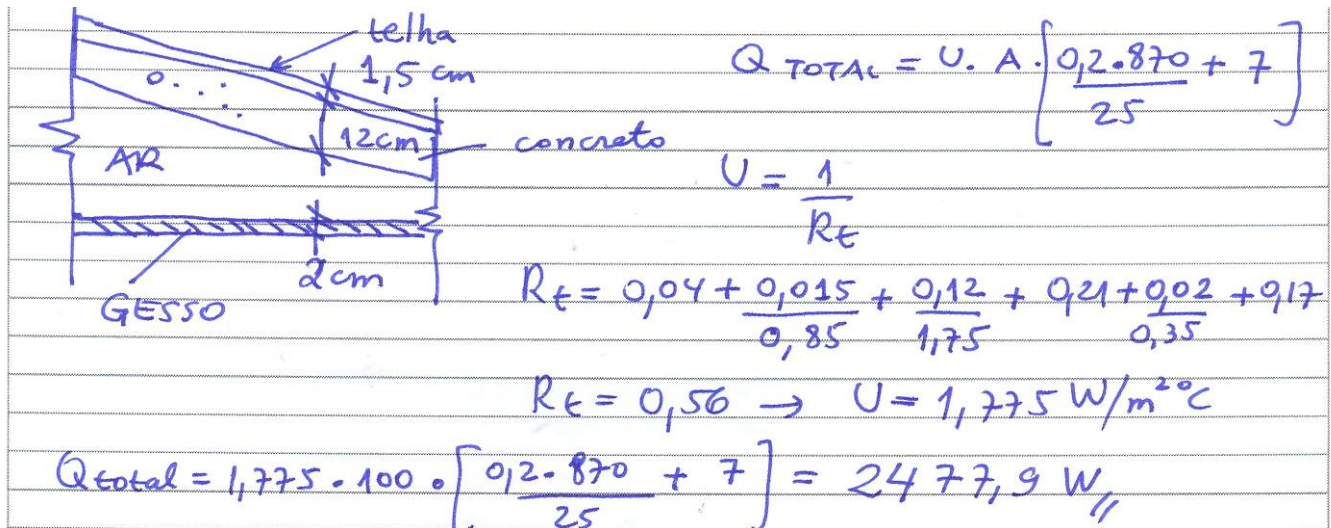 telha
1,5 cm
12cm
concreto
AR
2cm
GESSO
Q TOTAL = U. A. [0,2.870/25 + 7]
U = 1/Rt
Rt = 0,04 + 0,015/0,85 + 0,12/1,75 + 0,21 + 0,02/0,35 + 0,17
Rt = 0,56 → U = 1,775 W/m²°C
Qtotal = 1,775 . 100 . [0,2.870/25 + 7] = 2477,9 W//